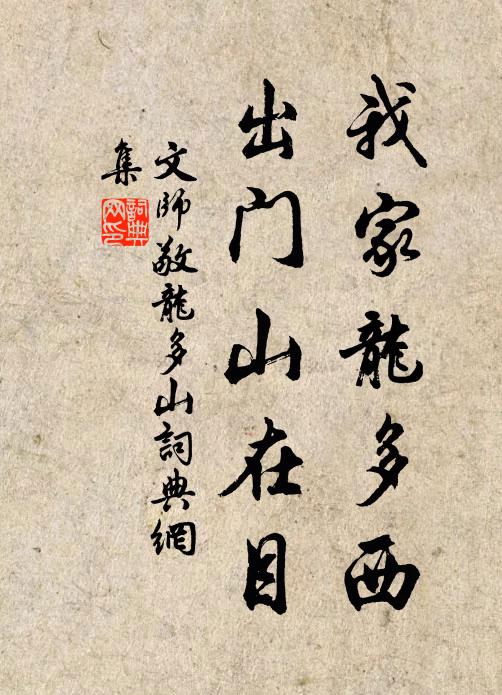 我家龍多西
出門山在目
文師敬龍多山詞典網
集
詞典網印